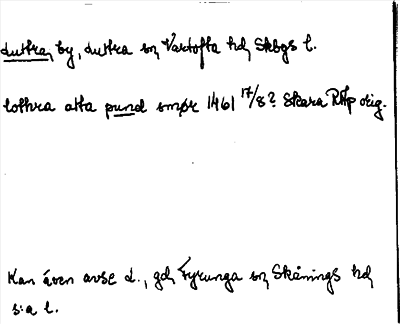 Luttra, by, Luttra sn, Vartofta hd, Skbgs l.
lothra atta pund smør 1461 17/8? Skara RAp orig.
Kan även avse L., gd, Fyrunga sn, Skånings hd
s:a l.